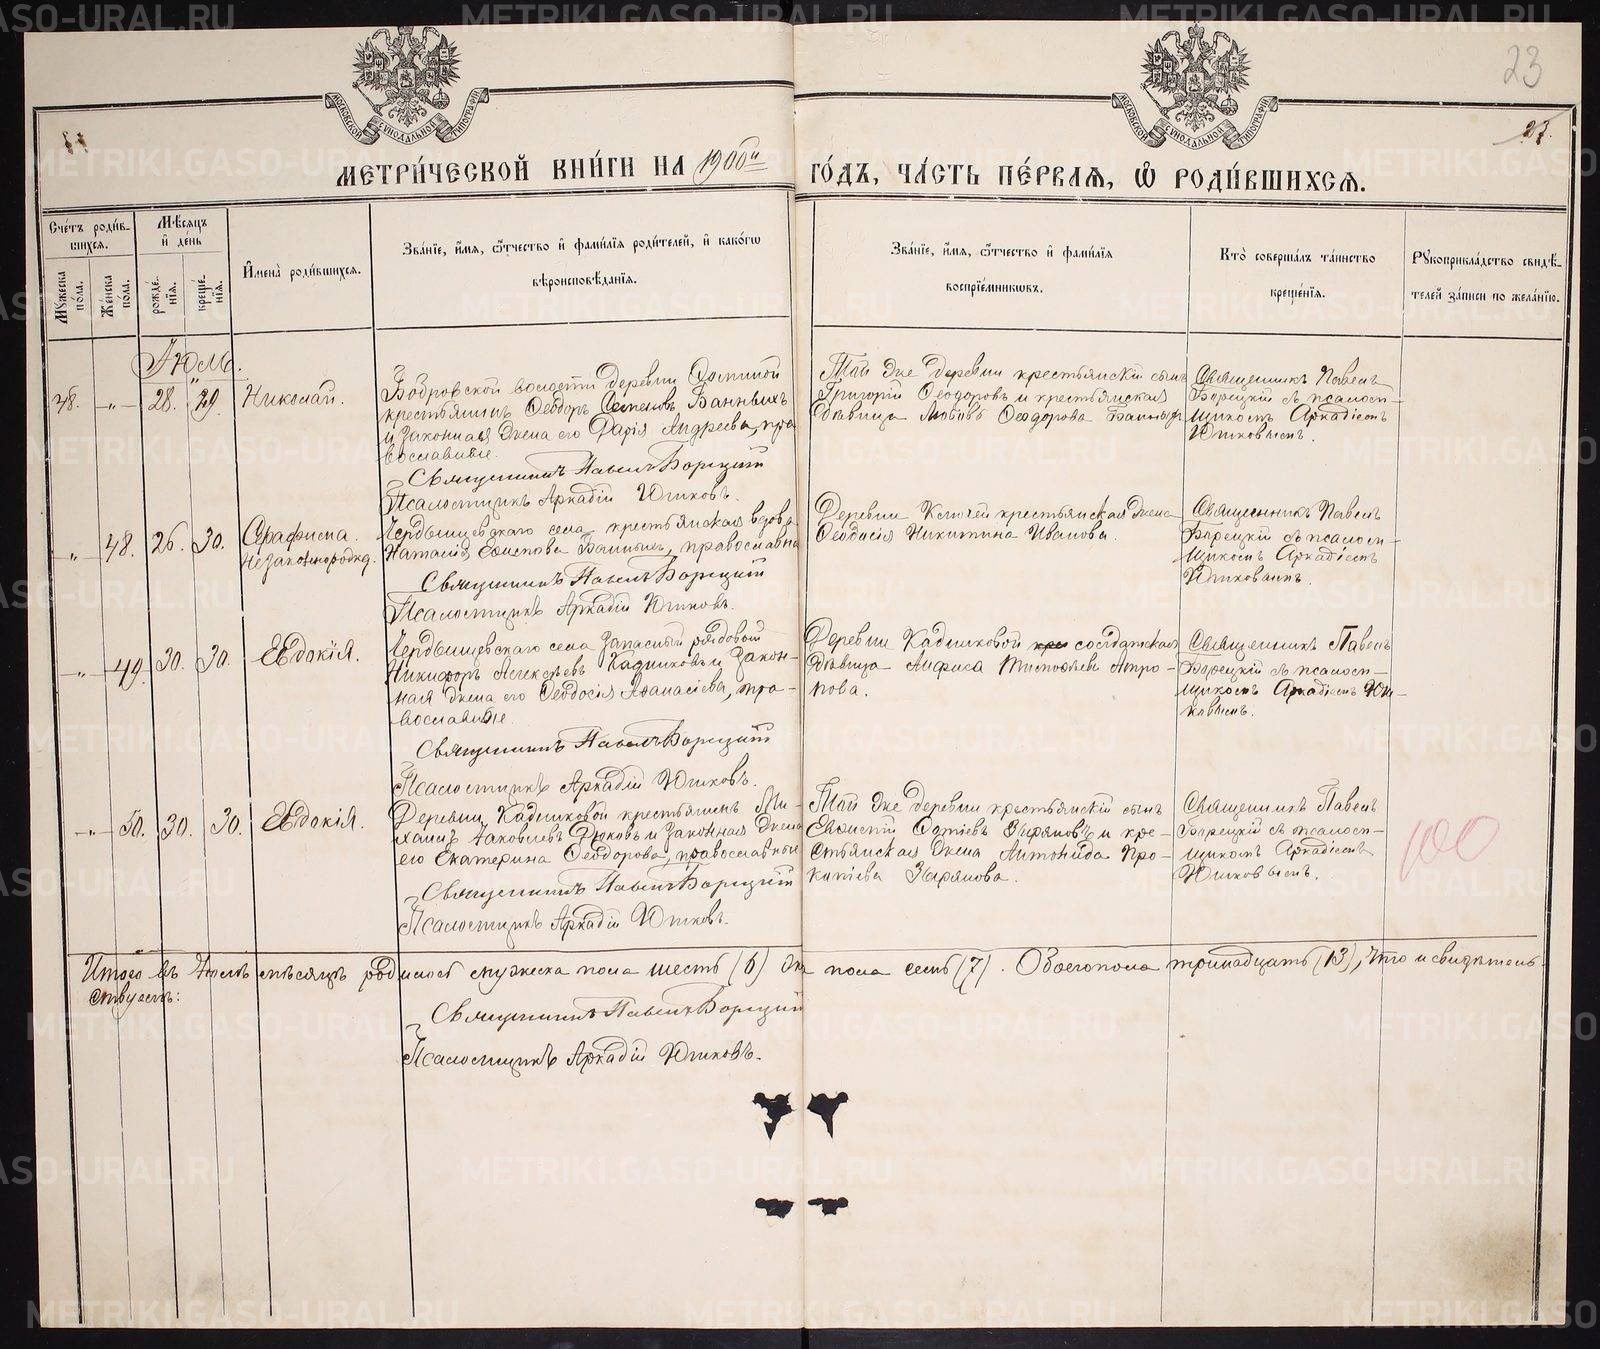 23
27.
МОСКОВСКОЙ СѴНОДАЛЬНОЙ ТИПОГРАФІИ
МОСКОВСКОЙ СѴНОДАЛЬНОЙ ТИПОГРАФІИ
МЕТРИ́ЧЕСКОЙ КНИ́ГИ НА 1900й ГО́ДЪ, ЧА́СТЬ ПЕ́РВАѦ, Ѡ РОДИ́ВШИХСѦ.
Сче́тъ роди́в-
шихся.
Мѣ́сяцъ
и́ де́нь
Му́жеска по́ла.
Же́нска по́ла.
рожде́-нїя.
креще́-нїя.
И҆мена̀ роди́вшихся.
Зва́нїе, и҆́мя, ѻ҆́тчество и҆ фами́лїя роди́телей, и҆ како́гѡ
вѣроисповѣ́данїя.
Зва́нїе, и҆́мя, ѻ҆́тчество и҆ фами́лїя
воспрїе́мникѡвъ.
Кто̀ соверша́лъ та́инство
креще́нїя.
Рꙋкоприкла́дство свидѣ́-
телей за́писи по жела́нїю.
Іюль.
48. -„- 28. 29. Николай.
Бобровской волости деревни
крестьянинъ Ѳеодоръ Семеновъ Банныхъ
и законная жена его Дарія Андреева, пра-
вославные.
Священникъ Павелъ Борецкій
Псаломщикъ Аркадій Юшковъ.
Той же деревни крестьянскій сынъ
Григорій Ѳеодоровъ и крестьянская
дѣвица Любовь Ѳеодорова Банныхъ
Священникъ Павелъ
Борецкій съ псалом-
щикомъ Аркадіемъ
Юшковымъ.
„ 48. 26. 30. Серафима.
Незаконнорожд.
села крестьянская вдова
Наталія Банныхъ, православна
Священникъ Павелъ Борецкій
Псаломщикъ Аркадій Юшковъ.
Деревни Ключей крестьянская жена
Ѳеодосія Никитина Иванова.
Священникъ Павелъ
Борецкій съ псалом-
щикомъ Аркадіемъ
Юшковымъ.
-„- 49. 30. 30. Евдокія.
села запасный рядовой
Никифоръ Алексѣевъ Кадниковъ и закон-
ная жена его Ѳеодосія Аѳанасіева, пра-
вославные
Священникъ Павелъ Борецкій
Псаломщикъ Аркадій Юшковъ.
Деревни Кадниковой солдатская
дѣвица Анфиса Тимоѳеева
Священникъ Павелъ
Борецкій съ псалом-
щикомъ Аркадіемъ Юш-
ковымъ.
-„- 50. 30. 30. Евдокія.
Деревни Кадниковой крестьянинъ Ми-
хаилъ Яковлевъ и законная жена
его Екатерина Ѳеодорова, православные
Священникъ Павелъ Борецкій
Псаломщикъ Аркадій Юшковъ.
Той же деревни крестьянскій сынъ
Зыряновъ и кре-
стьянская жена Антонида Про-
копіева Зырянова.
Священникъ Павелъ
Борецкій съ псалом-
щикомъ Аркадіемъ
Юшковымъ.
100
Итого въ Іюлѣ мѣсяцѣ родилось мужеска пола шесть (6) же пола семь (7). Обоего пола тринадцать (13), что и свидѣтель-
ствуемъ:
Священникъ Павелъ Борецкій
Псаломщикъ Аркадій Юшковъ.
METRIKI.GASO-URAL.RU